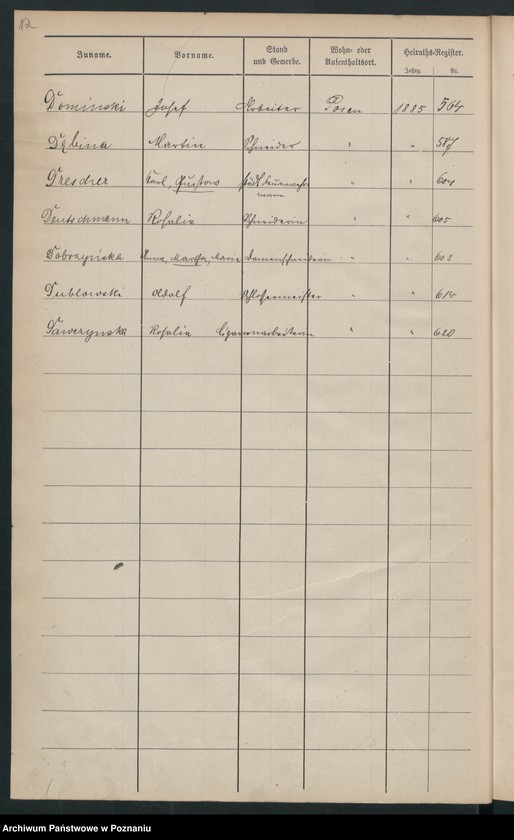 12
Zuname. Vorname. Stand und Gewerbe. Wohn- oder Aufenthaltsort. Heiraths-Register.
Jahrg. Nr.
Dominski Josef Arbeiter Posen 1885 564
Dybina Martin Schneider " " 587
Drescher Carl, Gustav städt. Feuerwehr " " 604
mann
Deutschmann Rosalie Schneiderin " " 605
Dobrzyńska Anna, Martha, Marie Damenschneiderin " " 608
Dublowski Adolf Schlossermeister " " 614
Dawczynska Rosalie Cigarrenarbeiterin " " 620
Archiwum Państwowe w Poznaniu